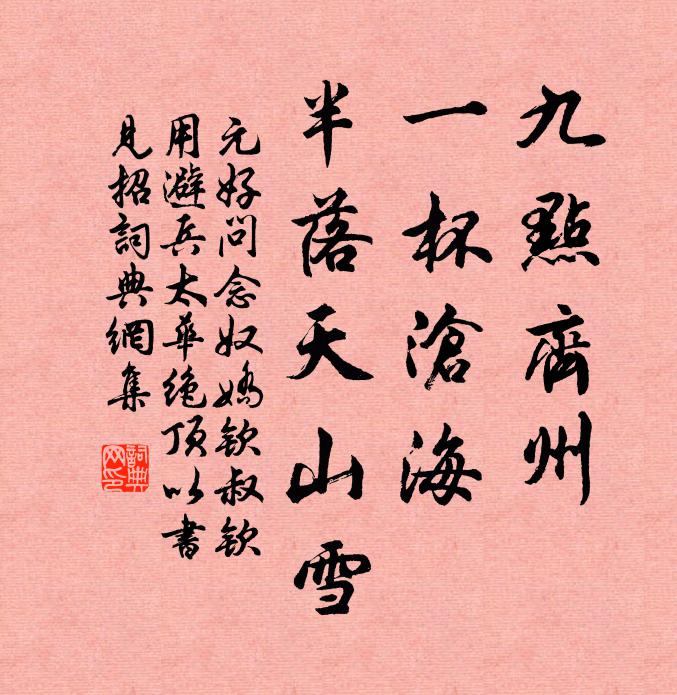 九點齊州
一杯滄海
半落天山雪
元好問念奴嬌欽叔欽
用避兵太華絕頂以書
見招詞典網集
詞典網印